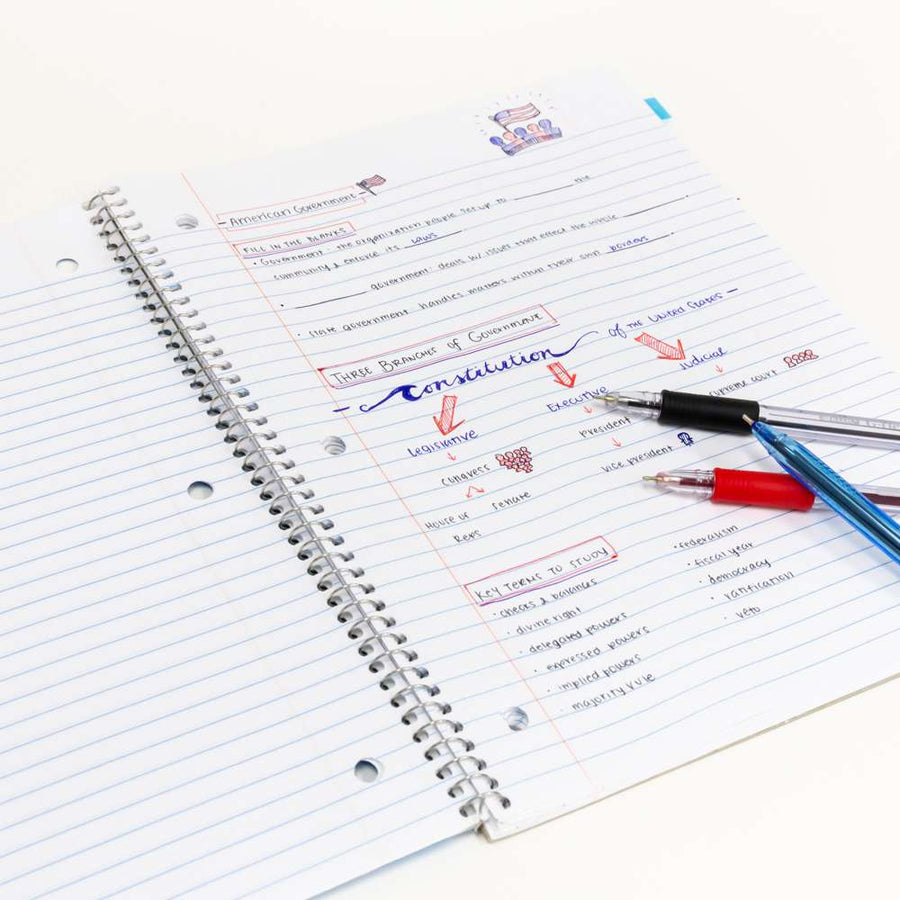 American Government
FILL IN THE BLANKS
• Government - the organization people set up to ________ the
community & enforce its laws
• ________ government deals w/ issues that effect the whole ________
• state government handles matters within their own borders
THREE Branches of Government
Constitution of the United States
Legislative Executive Judicial
Congress President supreme court
House of Reps Senate vice president
KEY TERMS TO STUDY
• checks & balances
• divine right
• delegated powers
• expressed powers
• implied powers
• majority rule
• federalism
• fiscal year
• democracy
• ratification
• veto